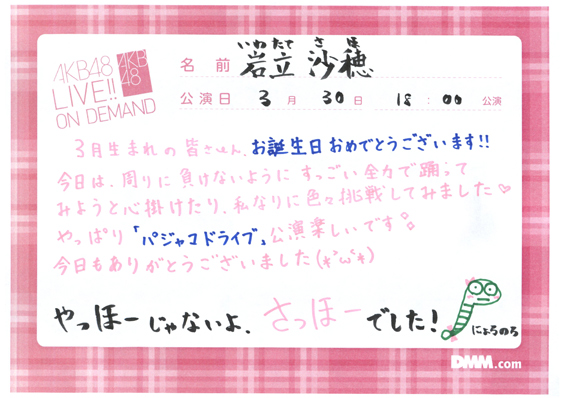 AKB48
LIVE!!
ON DEMAND
AKB
48
いわたて さほ
名前 岩立 沙穂
公演日 3月 30日 18:00 公演
3月生まれの皆さん、お誕生日おめでとうございます!!
今日は、周りに負けないようにすっごい全力で踊って
みようと心掛けたり、私なりに色々挑戦してみました♡
やっぱり「パジャマドライブ」公演楽しいです
今日もありがとうございました(*'ω'*)
やっほーじゃないよ、さっほーでした!
にょろのろ
DMM.com